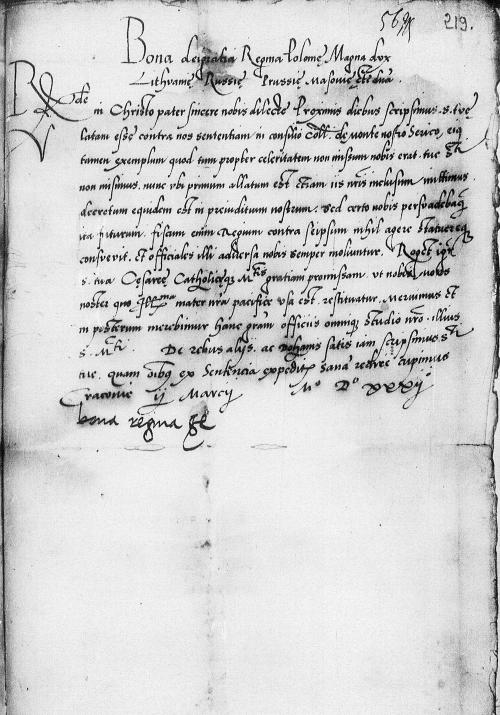 219.
Bona dei gratia Regina Polonię Magna dux
Lithuanię Russię Prussię Masovię etc dna
Rde in Christo pater sincere nobis dilecte Proximis diebus scripsimus s. tuę
latam esse contra nos sententiam in consilio Coll. de monte nostro
tamen exemplum quod tum propter celeritatem non missum nobis erat. tuę Sti
non misimus. nunc ubi primum allatum est etiam iis nris inclusum mittimus
decretum equidem est in preiuditium nostrum. sed certo nobis persuadebamus
ita futurum. fiscum enim Regium contra seipsum nihil agere statuereque
consuevit. et officiales illi adversa nobis semper moliuntur. Roget igr
s. tua Cesareę Catholiceque Mtis gratiam promissam. ut nobis
noster quo Illma mater nra pacifice usa est. restituatur. Meruimus et
in posterum merebimur hanc gram officiis omnique studio nro. illius
s. Mti. De rebus aliis. ac satis iam scripsimus Sti
tuę. quam oibus ex sententia expeditis sanam redire cupimus
Cracovię ij Marcij Mo Do xxxvij
bona regina